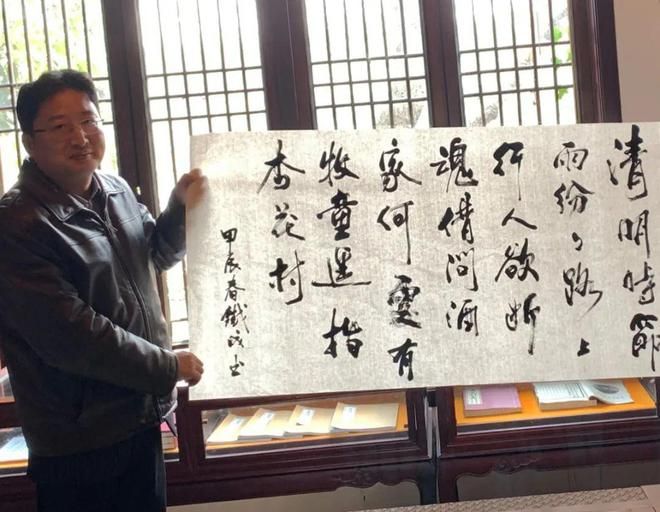 清明時節
雨紛々路上
行人欲断
魂借問酒
家何處有
牧童遥指
杏花村
甲辰春鐵成书